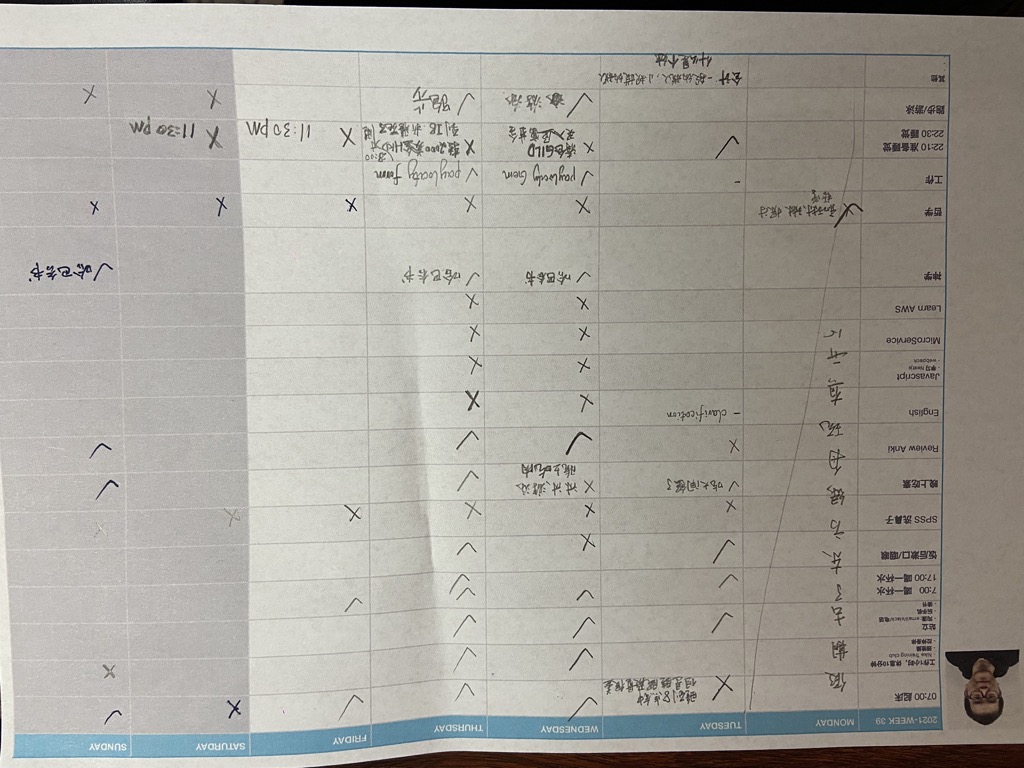 2021-WEEK 39 MONDAY TUESDAY WEDNESDAY THURSDAY FRIDAY SATURDAY SUNDAY
假期去了东方绿舟玩真开心
07:00 起床 ✗ 睡到8点钟 ✓ ✓ ✓ ✗ ✓
但是睡眠质量很差
工作1小时，休息10分钟 ✓ ✓ ✗
- Nike Training club
- 拉伸身体
站立 ✓ ✓ ✓ ✓
- 沟通: email/slack/电话
- 玩手机
- 读书
7:00 喝一杯水 ✓ ✓
17:00 喝一杯水 ✓ ✓
饭后漱口/咽喉 ✓ ✗ ✓ ✗
SPSS 洗鼻子 ✗ ✗ ✗ ✗ ✗
晚上吃素 ✓ 吃大闸蟹了 ✗ 游泳 ✓ ✓
晚上吃肉
Review Anki ✗ ✓ ✓ ✓
English – clarification ✗ ✗
Javascript ✗ ✗
- 学习 Nestjs
- webpack
MicroService ✗ ✗
Learn AWS ✗ ✗
神学 ✓ 哈巴谷书 ✓ 哈巴谷书 ✓ 哈巴谷书
哲学 ✓ 和琳琳探讨 ✗ ✗ ✗ ✗ ✗
哲学
工作 – ✓ paylocity Gem ✓ paylocity form
22:10 准备睡觉 ✓ ✗ 清仓GILD ✗ 转2000 HKD 23:00
22:30 睡觉 买入 基金 到IB 睡 ✗ 11:30 pm ✗ 11:30 pm
跑步/游泳 ✓ 游泳 ✓ 跑步 ✗ ✗
其他 会计 一般纳税人，小规模纳税人
什么是个独